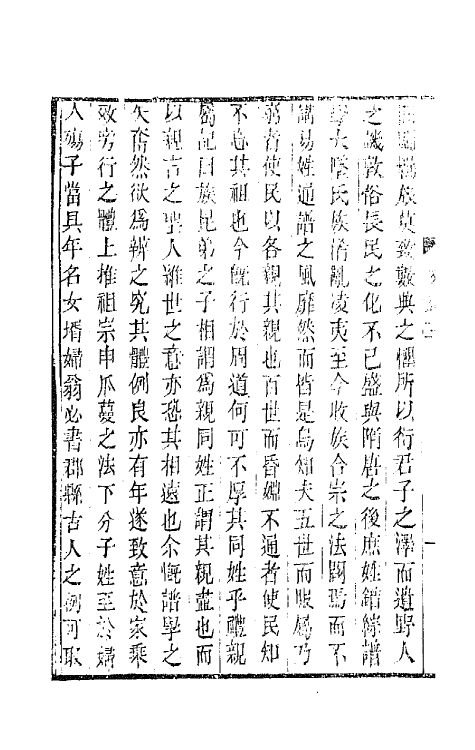 舊族莫致數典之懼所以衍君子之澤而遺野人
之譏敦俗長民之化不已盛與隋唐之後庶姓錯綜譜
學大墜氏族淆亂凌夷至今收族合宗之法闕焉而不
講易姓通譜之風靡然而皆是烏知夫五世而服屬乃
窮者使民以各親其親也百世而昏姻不通者使民知
不忘其祖也今旣行於周道何可不厚其同姓乎禮親
屬記曰族昆弟之子相謂爲親同姓正謂其親盡也而
以親言之聖人維世之意亦恐其相遠也余慨譜學之
失奮然欲爲辨之究其體例良亦有年遂致意於家乘
效旁行之體上推祖宗申瓜蔓之法下分子姓至於婦
人殤子當具年名女壻婦翁必書郡縣古人之例可取